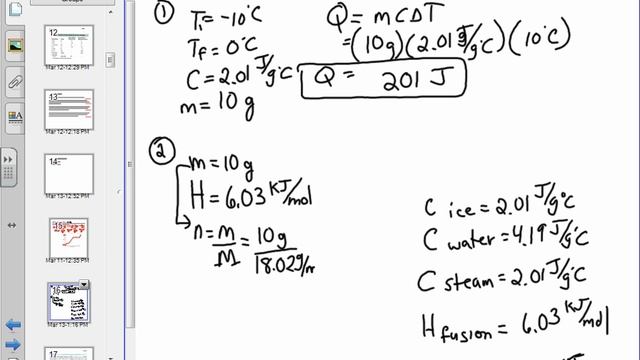 12
Mar 12-12:29 PM
13
Mar 12-12:18 PM
14
Mar 13-12:52 PM
15
Mar 11-12:35 PM
16
Mar 13-1:16 PM
17
① T₁ = -10°C
Tf = 0°C
C = 2.01 J/g°C
m = 10 g
Q = mCΔT
= (10g)(2.01 J/g°C)(10°C)
Q = 201 J
② m = 10 g
H = 6.03 KJ/mol
n = m/M = 10g/18.02g/m
C ice = 2.01 J/g°C
C water = 4.19 J/g°C
C steam = 2.01 J/g°C
H fusion = 6.03 KJ/mol